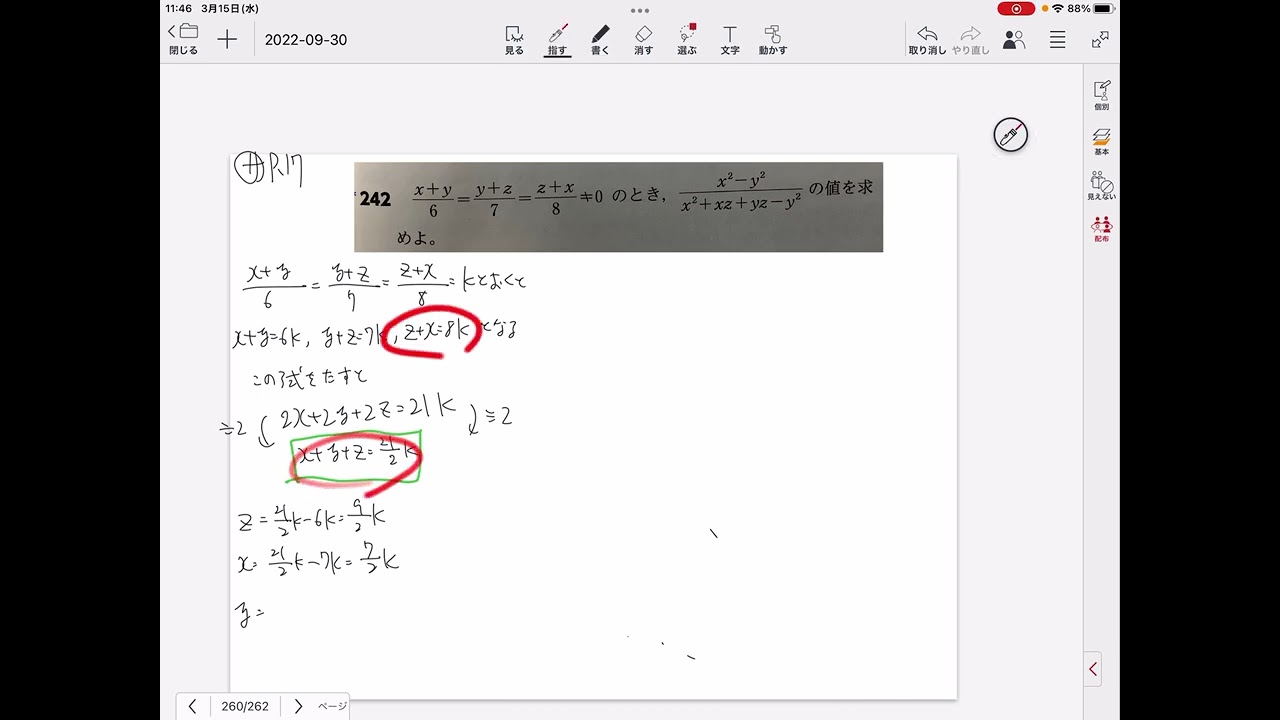 11:46 3月15日(水)
88%
閉じる
2022-09-30
見る 指す 書く 消す 選ぶ 文字 動かす
取り消し やり直し
個別
基本
見えない
配布
P.17
242 x+y/6 = y+z/7 = z+x/8 ≠0 のとき, x²−y²/x²+xz+yz−y² の値を求
めよ。
x+y/6 = y+z/7 = z+x/8 = kとおくと
x+y=6k, y+z=7k, z+x=8k となる
この3式をたすと
÷2 2x+2y+2z=21k ÷2
x+y+z=21/2k
z=21/2k−6k=9/2k
x=21/2k−7k=7/2k
y=
260/262 ページ